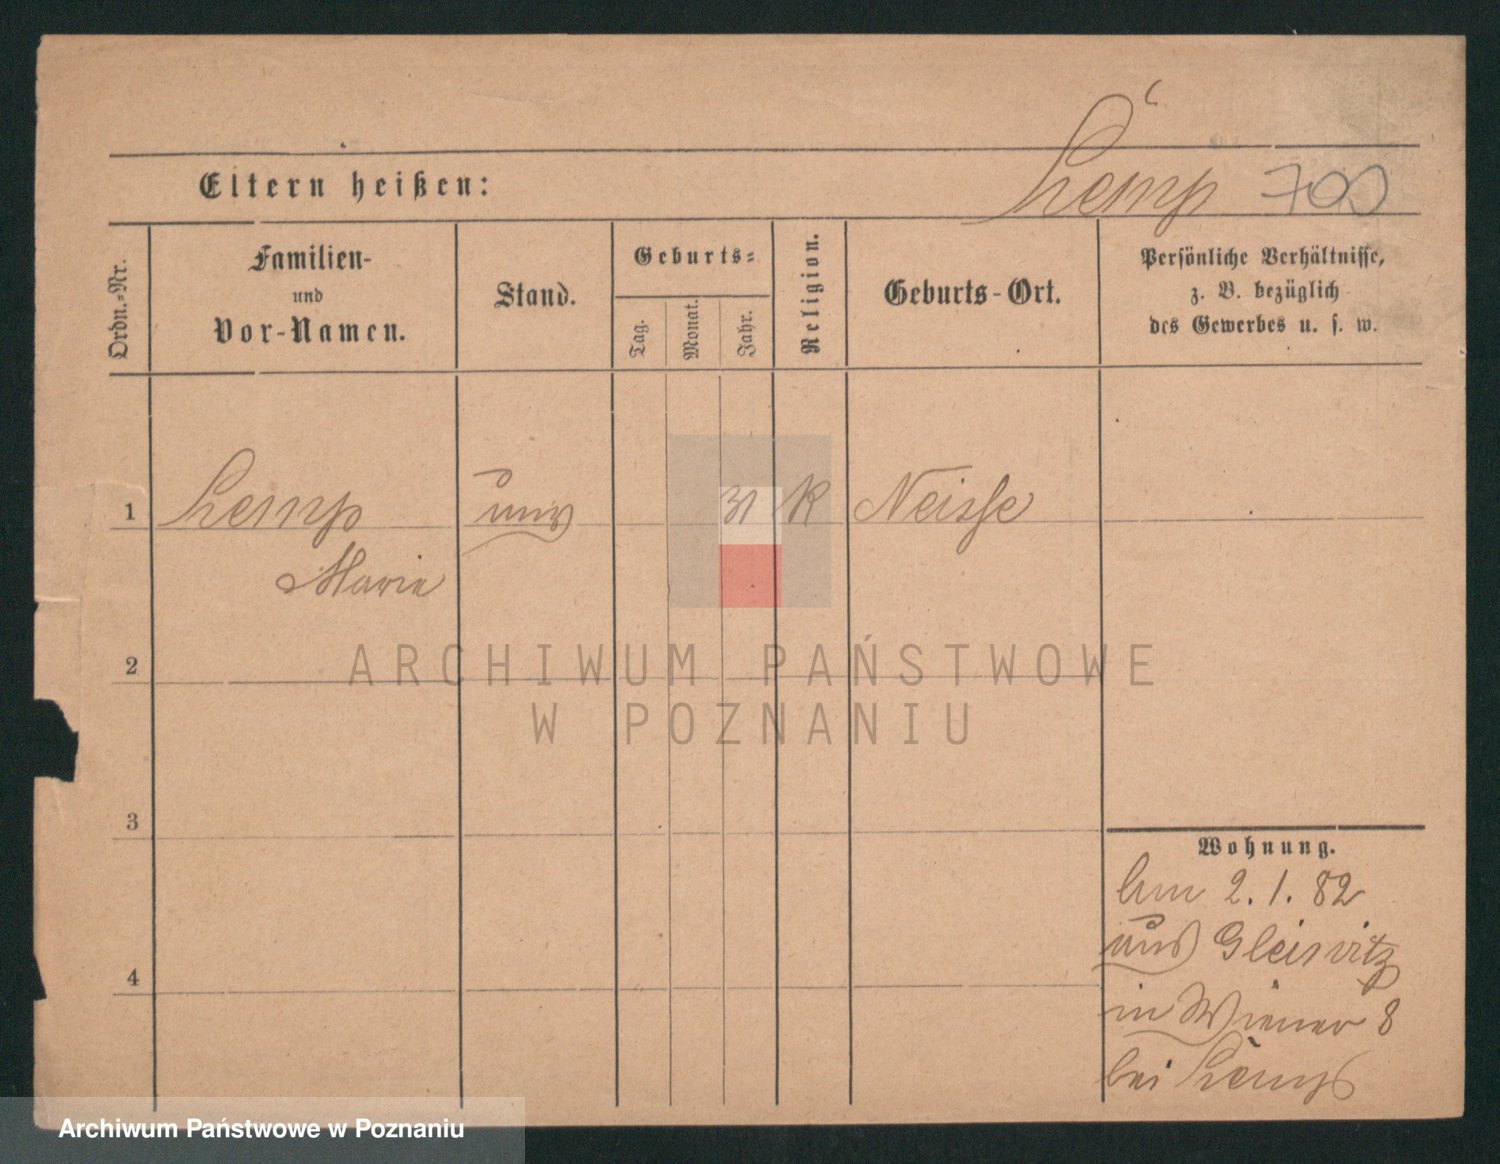 Lemp 700
Eltern heißen:
Ordn.-Nr.
Familien-
und
Vor-Namen.
Stand.
Geburts-
Tag.
Monat.
Jahr.
Religion.
Geburts-Ort.
Persönliche Verhältnisse,
z. B. bezüglich
des Gewerbes u. s. w.
1
Lemp
31 K Neisse
Marie
2
ARCHIWUM PAŃSTWOWE
W POZNANIU
3
Wohnung.
2. 1. 82
aus Gleiwitz
in Wiener 8
bei Lemp
4
Archiwum Państwowe w Poznaniu